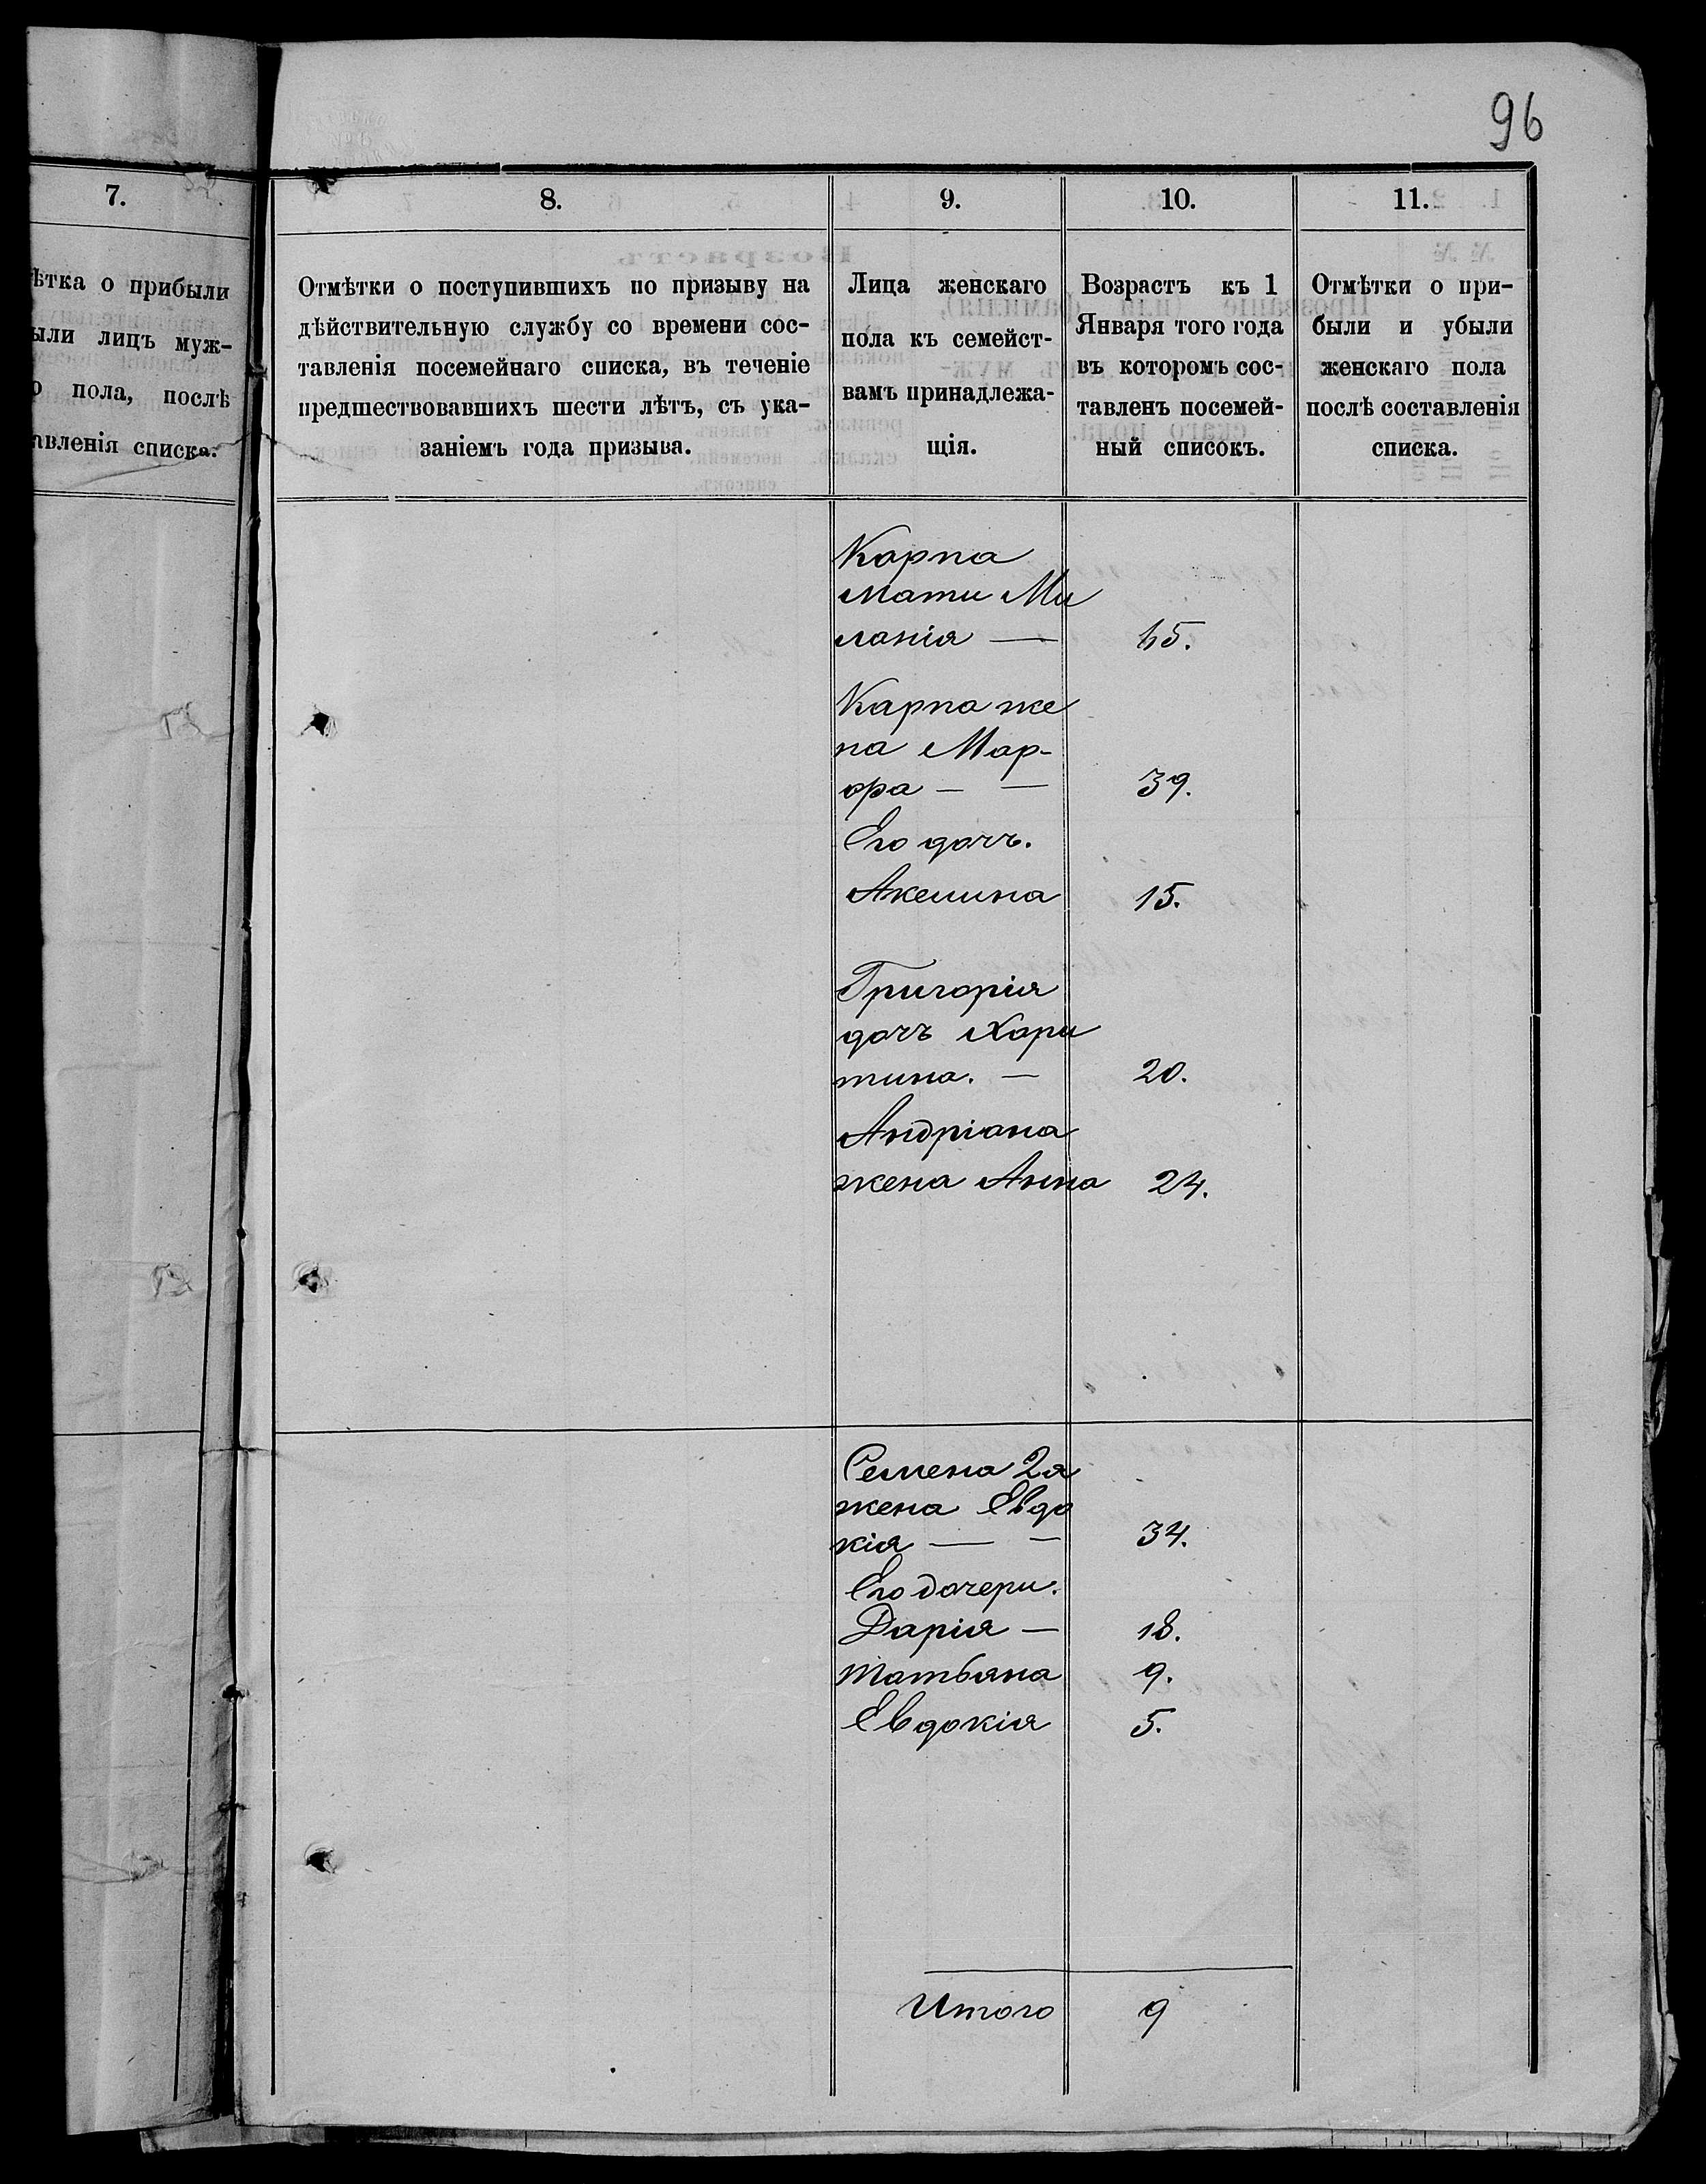 96
7.
ѣтка о прибыли
ыли лицъ муж-
о пола, послѣ
авленія списка.
8.
Отмѣтки о поступившихъ по призыву на
дѣйствительную службу со времени сос-
тавленія посемейнаго списка, въ теченіе
предшествовавшихъ шести лѣтъ, съ ука-
заніемъ года призыва.
9.
Лица женскаго
пола къ семейст-
вамъ принадлежа-
щія.
10.
Возрастъ къ 1
Января того года
въ которомъ сос-
тавленъ посемей-
ный списокъ.
11.
Отмѣтки о при-
были и убыли
женскаго пола
послѣ составленія
списка.
Карпа
мати Ми
ланія —
Карпа же
на Мар-
ора — — 39.
Его дочь.
Акелина 15.
Григорія
дочь Хари
тина. — 20.
Андріана
жена Анна 24.
Семена 2я
жена Евдо
кія — — 34.
Его дочери.
Дарія — 18.
Татьяна 9.
Евдокія 5.
Итого 9